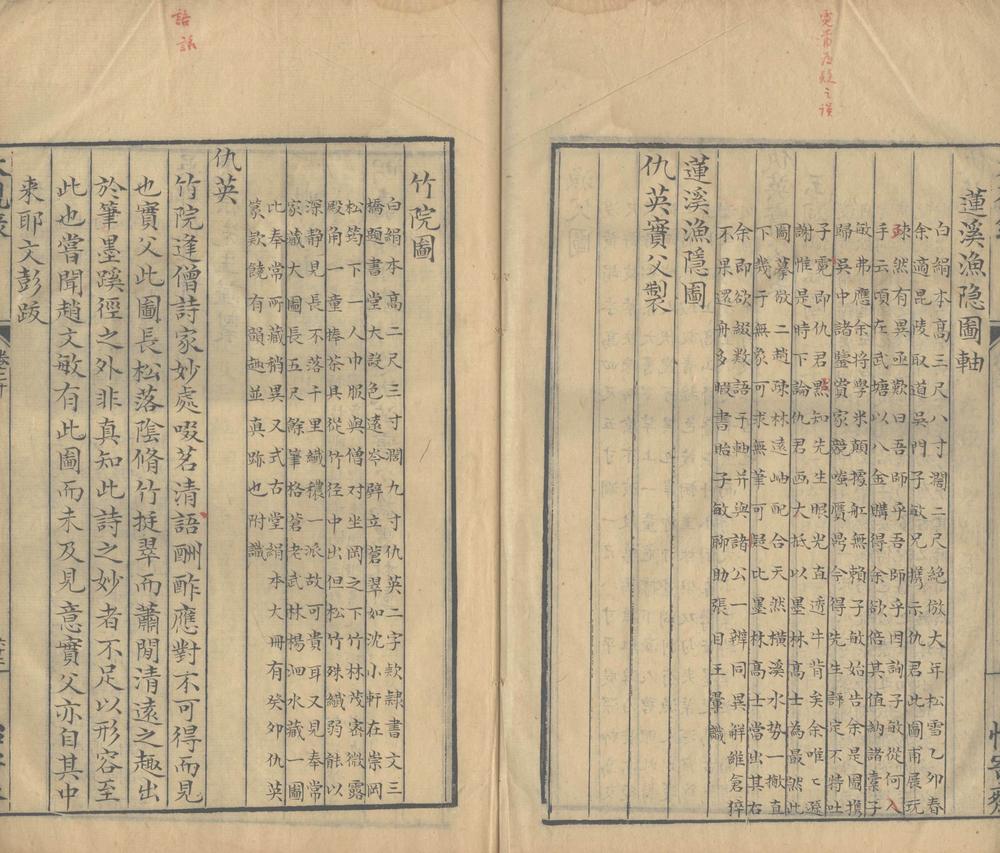 霓常为疑之误
蓮溪漁隐圖軸
白絹本高三尺八寸濶二尺絶倣大年松雪乙卯春
余適昆陵取道吳門子敏兄攜示仇君此圖甫展玩
疎然有異亟歎曰吾師乎吾師乎因詢子敏從何入
手云頃在武塘以八金購得余欲倍其值納諸橐子
敏弗應余将學米顛據舡無賴子敏始告余是圖攜
歸吳中諸鑒賞家競嗤贋鼎今得先生評定不特吐
子霓即仇君㸃知先生眼光直透牛背矣余唯〻遜
謝惟是時下論仇君画大抵以墨林髙士為最然此
圖摹倣二趙琭林遠岫配合天然橫溪水势一撇直
下幾于無象可求無筆可疑比墨林高士當出其右
余即欲綴数語于軸并與諸公一辨同異觧維倉猝
不果還舟多暇書貽子敏聊助張目王翬識
蓮溪漁隱圖
仇英實父製
語誤
竹院圖
白絹本高二尺三寸濶九寸仇英二字欵隷書文三
橋題書堂大設色遠岑劈立蒼翠如沈小軒在崇岡
松筠下一人巾服與僧对坐岡之下竹林茂密微露
殿角一童捧茶具從竹径中出但松竹殊纎弱能以
深静見長不落千里纎穠一派故可貴耳又見奉常
家藏大圖長五尺餘筆格蒼老武林楊泗水藏一圖
此奉常所藏稍異又式古堂絹本大冊有癸卯仇英
篆欵饒有韻趣並真跡也附識
仇英
竹院逢僧詩家妙處啜茗清語酬酢應對不可得而見
也實父此圖長松落陰脩竹挺翠而蕭閒清遠之趣出
於筆墨蹊徑之外非真知此詩之妙者不足以形容至
此也嘗聞趙文敏有此圖而未及見意實父亦自其中
来耶文彭跋